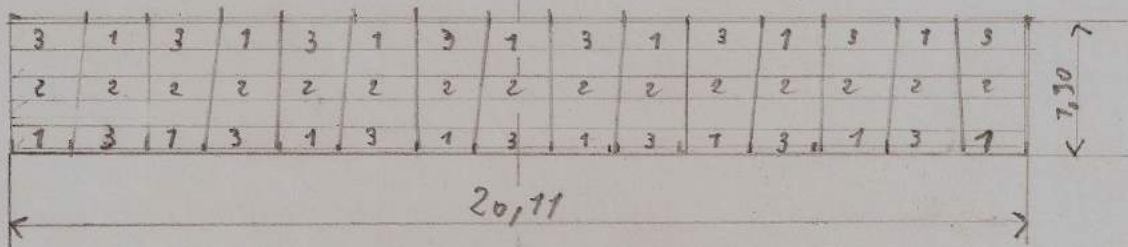 3 1 3 1 3 1 3 1 3 1 3 1 3 1 3
2 2 2 2 2 2 2 2 2 2 2 2 2 2 2
1 3 1 3 1 3 1 3 1 3 1 3 1 3 1
1,90
20,11